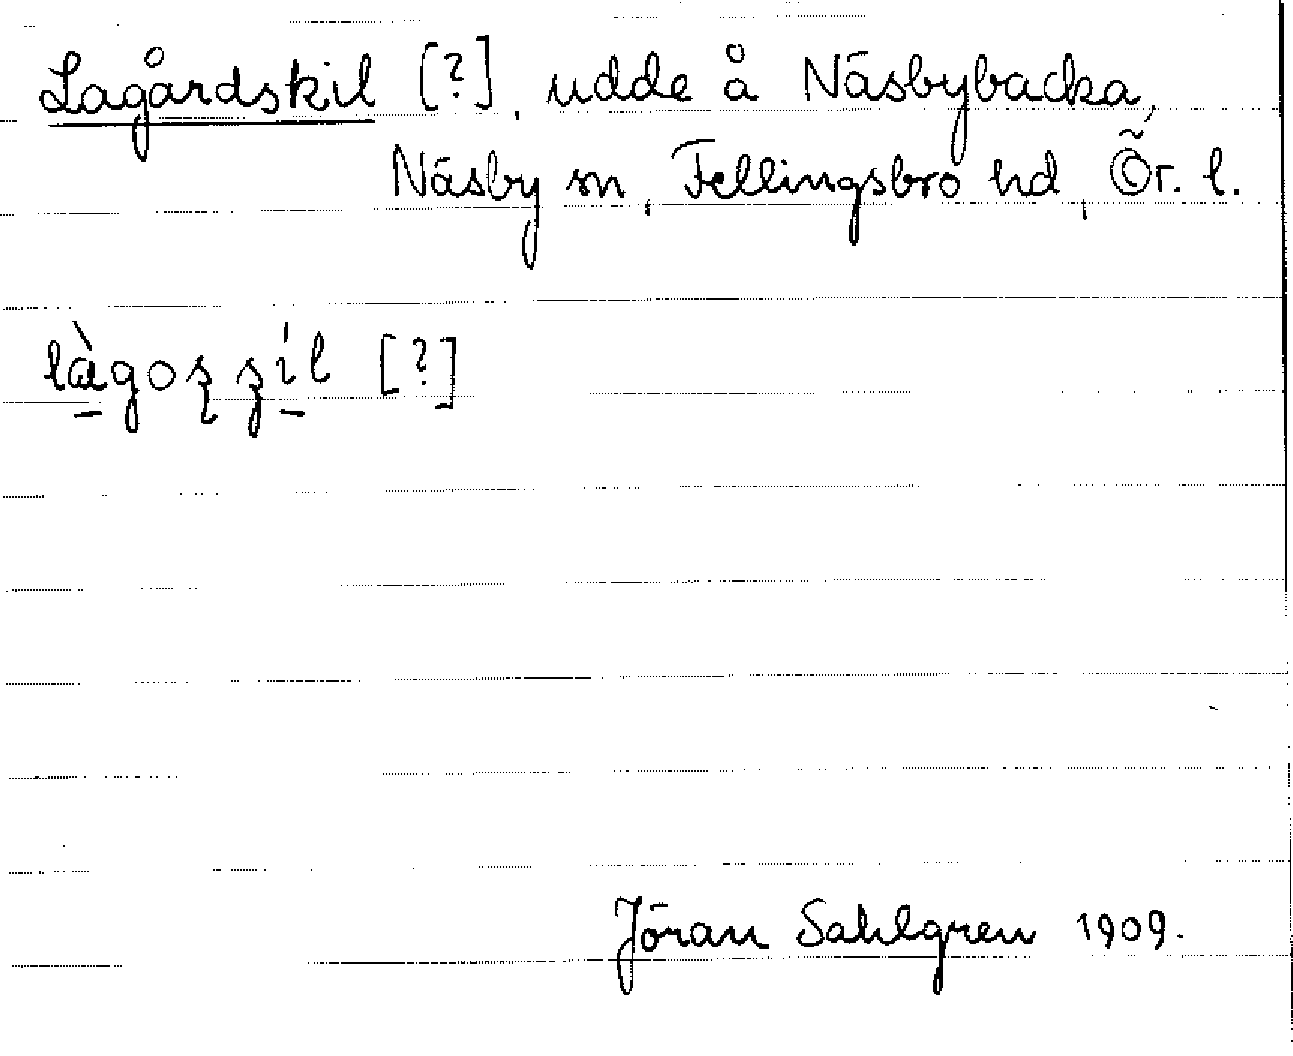 Lagårdskil [?], udde å Näsbybacka,
Näsby sn, Fellingsbro hd, Ör. l.
làgosşíl [?]
Jöran Sahlgren 1909.